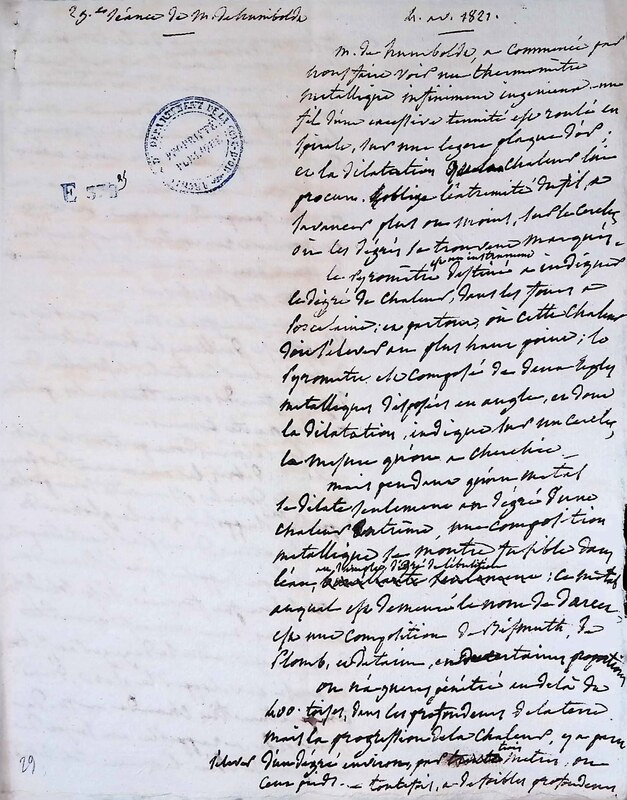 29.e Séance de M. de humboldt 4. av. 1821.
M. de humboldt, a commencé par
nous faire voir un thermomètre
métallique infiniment ingénieux. un
fil d'une excessive tenuité est roulé en
spirale, sur une légère plaque d'or;
et la dilatation que la chaleur lui
procure. oblige l'extrémité du fil, a
s'avancer plus ou moins, sur le cercle,
où les dégrés se trouvent marqués.
le Pyromètre est un instrument destiné a indiquer
le dégré de chaleur, dans les fours a
Porcelaine; et partout, où cette chaleur
doit s'élever au plus haut point; le
Pyromètre est composé de deux règles
métalliques disposées en angle, et dont
la dilatation, indique sur un cercle,
la mesure qu'on a cherchée.
mais pendant qu'un métal
se dilate seulement au dégré d'une
chaleur extrême, une composition
métallique se montre fusible dans
l'eau, au simple dégré de l'ébullition; ce métal
auquel est demeuré le nom de darcet,
est une composition de Bismuth, de
Plomb, et d'étain, en certaines proportions
on n'a guères pénétré au delà de
400. toises, dans les profondeurs de la terre
mais la progression de la chaleur, y a paru
s'élever d'un dégré environ, par trois mètres, ou
pieds. toutefois, a de faibles profondeurs,
DÉPARTEMENT DE L'
PROPRIÉTÉ
PUBLIQUE
E 379
29